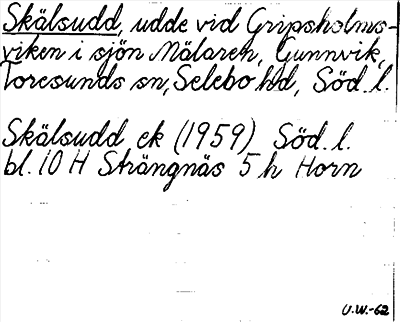 Skälsudd, udde vid Gripsholms-
viken i sjön Mälaren, Gunnvik,
Toresunds sn, Selebo hd, Söd. l.
Skälsudd ek (1959) Söd. l.
bl. 10 H Strängnäs 5 h Horn
U.W.-62